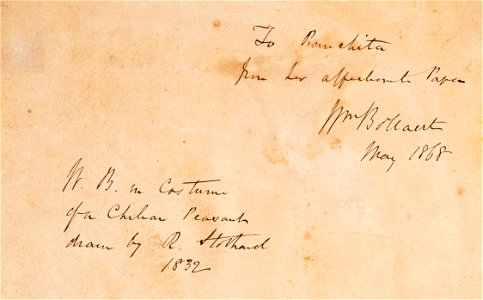 To Panchita
from her affectionate Papa
Wm Bollaert
May 1868
W. B. in Costume
of a Chilian Peasant
drawn by R. Stothard
1832